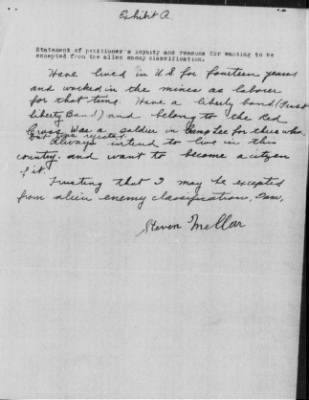 Exhibit A
Statement of petitioner's loyalty and reasons for wanting to be
excepted from the alien enemy classification.
Have lived in U S for fourteen years
and worked in the mines as laborer
for that time. Have a liberty bond (First
Liberty Bond) and belong to the Red
Cross. Was a soldier in Camp Lee for
Always intend to live in this
country. and want to become a citizen
of it.
Trusting that I may be excepted
from alien enemy classification, I am,
Steven Mellar